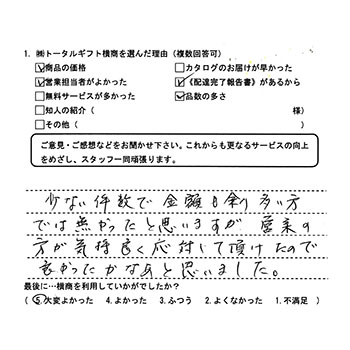 1. ㈱トータルギフト横商を選んだ理由（複数回答可）
☑商品の価格 □カタログのお届けが早かった
☑営業担当者がよかった ☑《配達完了報告書》があるから
□無料サービスが多かった ☑品数の多さ
□知人の紹介（ 様）
□その他（ ）
ご意見・ご感想などをお聞かせ下さい。これからも更なるサービスの向上
をめざし、スタッフ一同頑張ります。
少ない件数で金額も余り多い方
では無かったと思いますが 営業の
方が気持良く応対して頂けたので
良かったかなぁと思いました。
最後に…横商を利用していかがでしたか？
（ 5.大変よかった 4.よかった 3.ふつう 2.よくなかった 1.不満足 ）